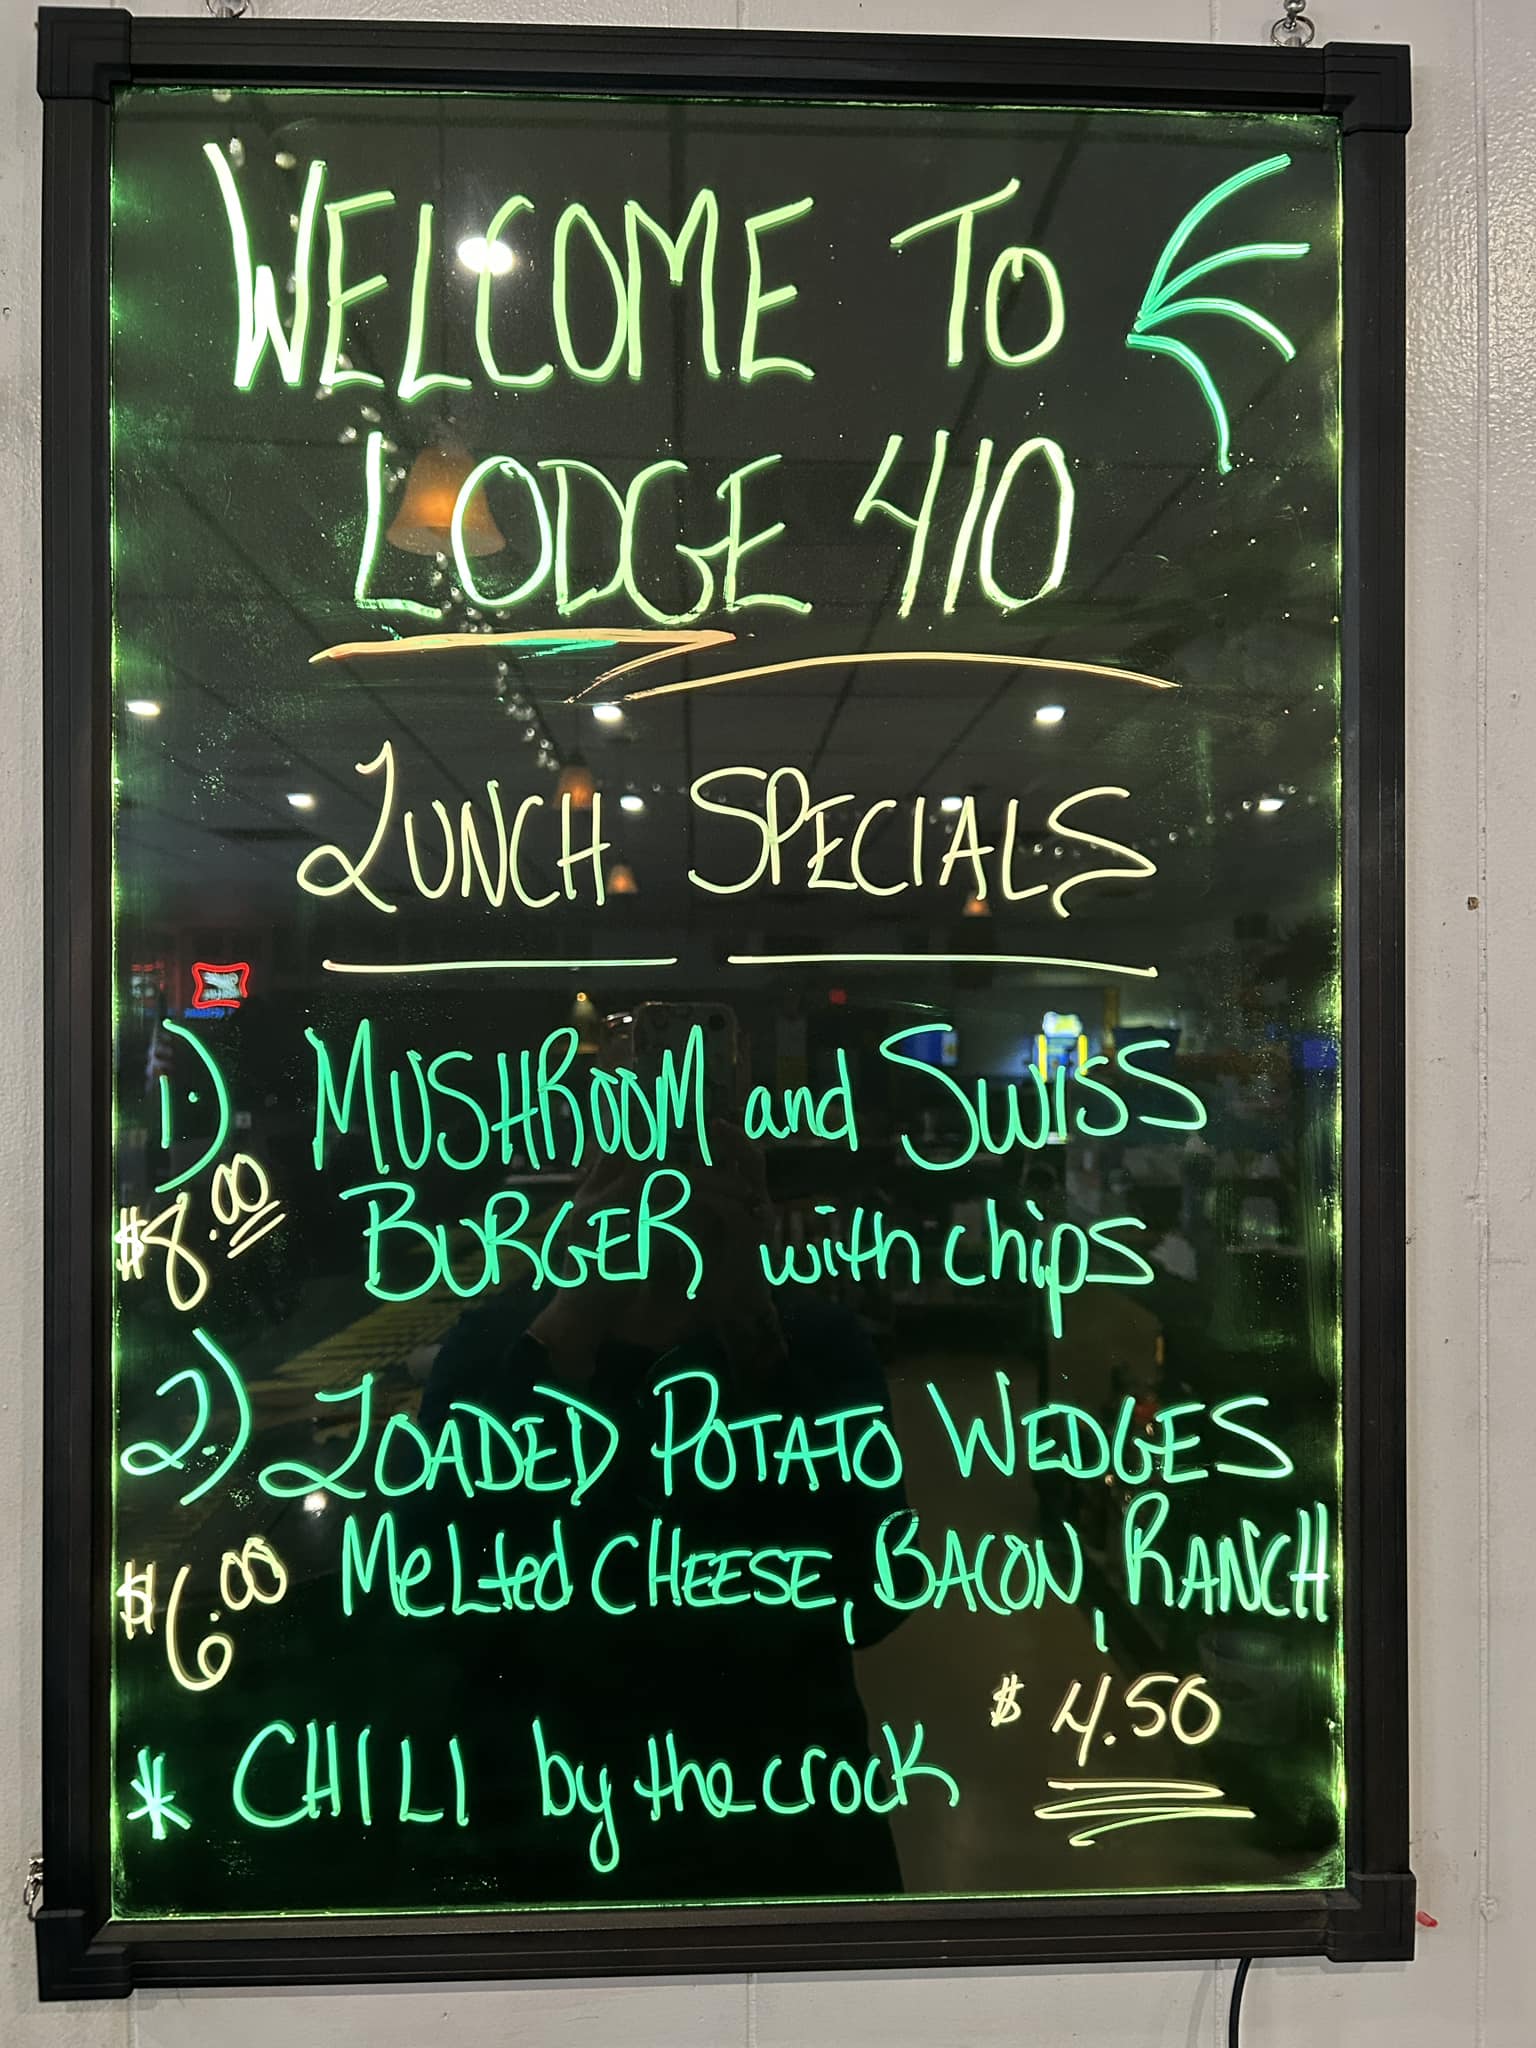 WELCOME TO
LODGE 410
LUNCH SPECIALS
1.) MUSHROOM and SWISS
$8.00 BURGER with chips
2.) LOADED POTATO WEDGES
$6.00 Melted CHEESE, BACON, RANCH
* CHILI by the crock $4.50